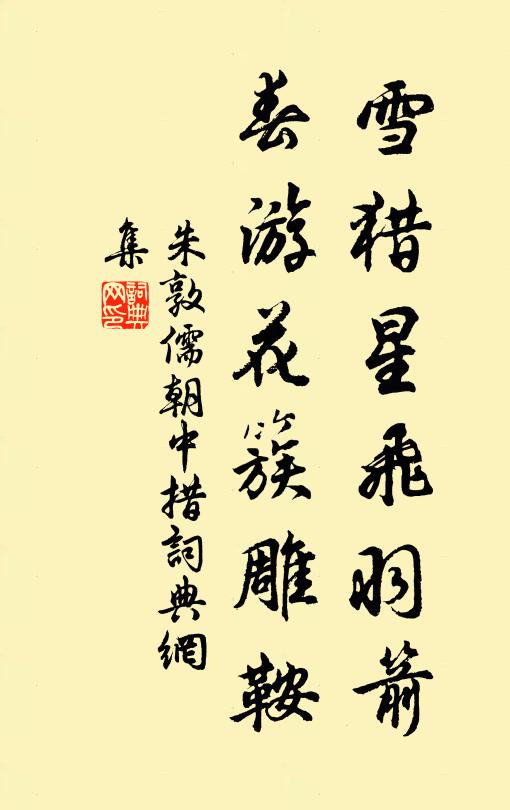 雪猎星飛羽箭
春游花簇雕鞍
朱敦儒朝中措詞典網
集
詞典網印